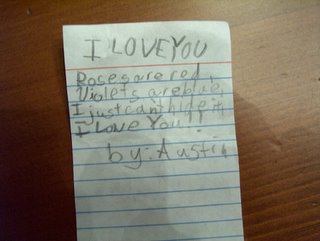 I LOVE YOU
Roses are red,
Violets are blue,
I just can't hide it
I LOVE YOU!!
by: Austin